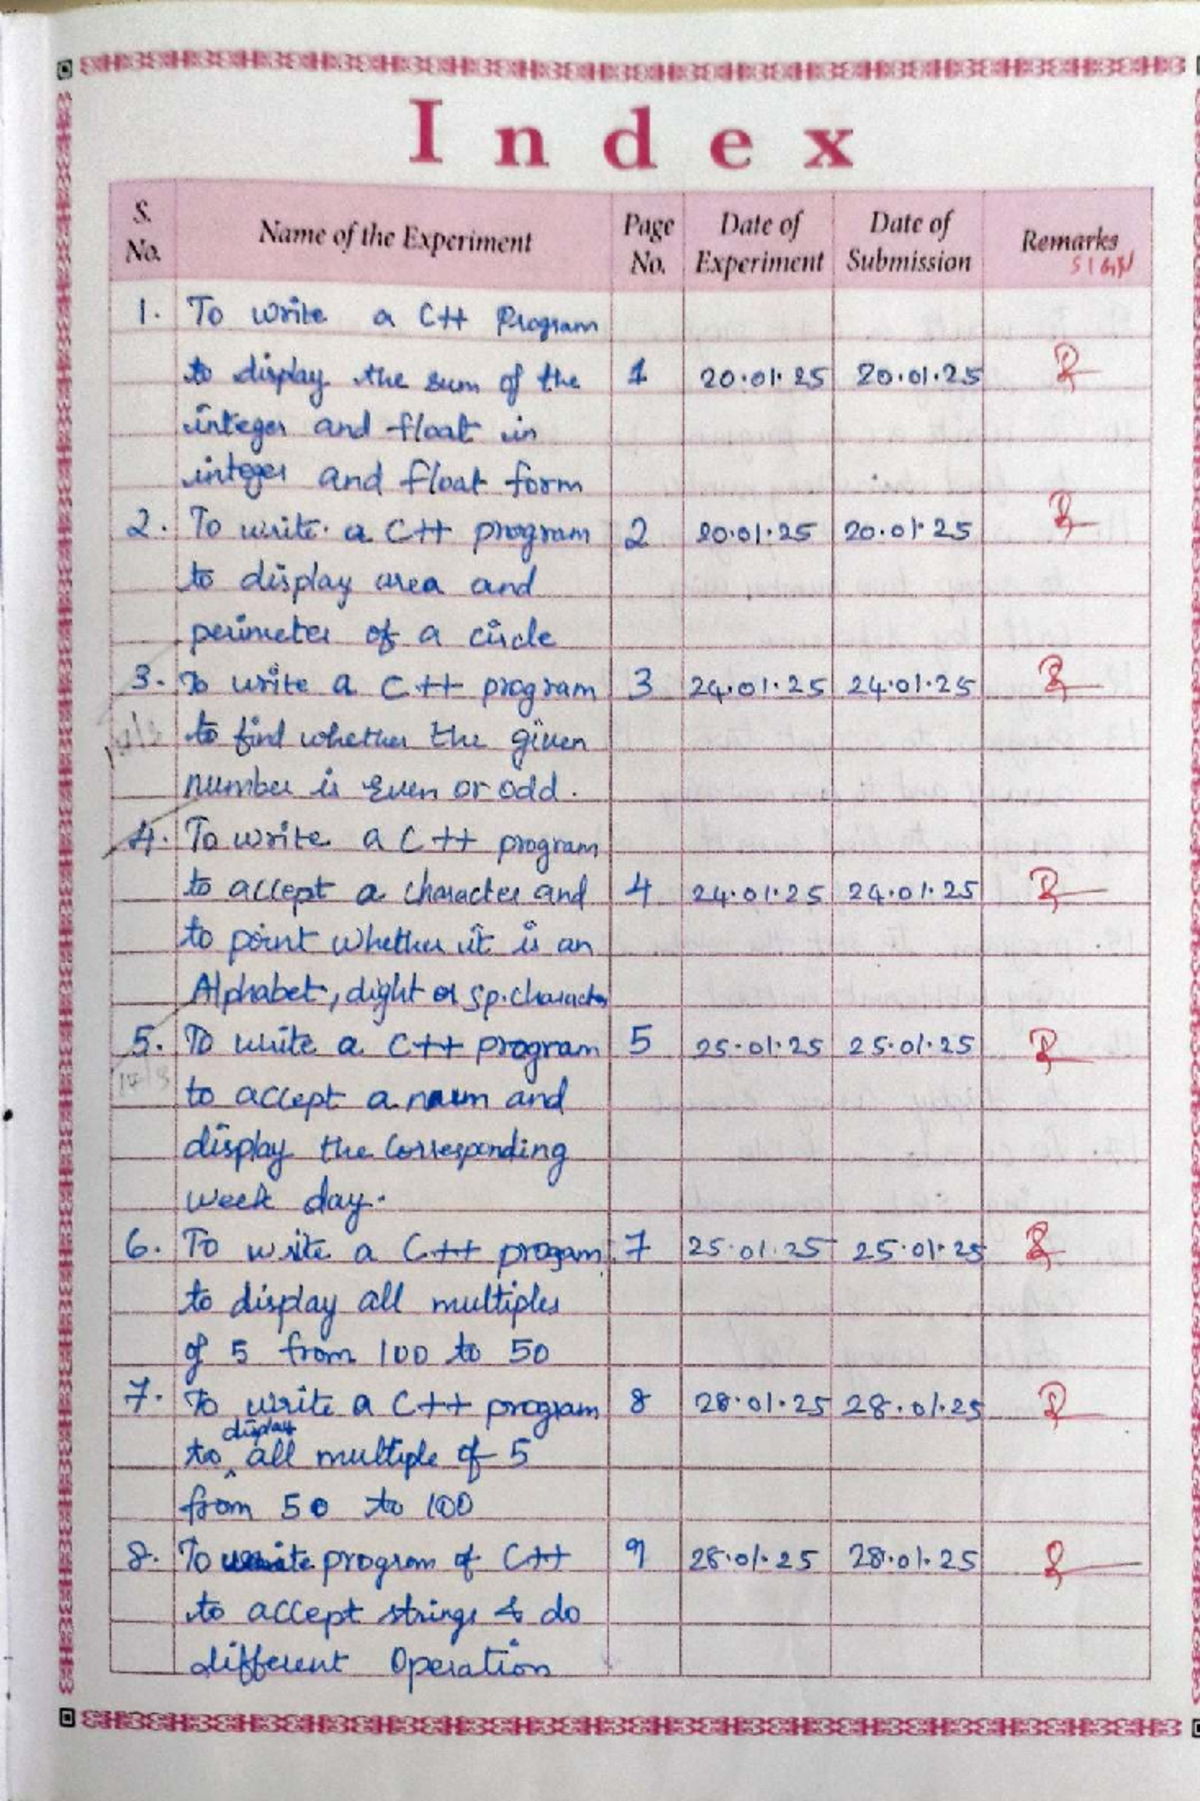 Index
S. No. Name of the Experiment Page No. Date of Experiment Date of Submission Remarks
sign
1. To write a C++ Program
to display the sum of the 1 20.01.25 20.01.25
integer and float in
integer and float form
2. To write a C++ program 2 20.01.25 20.01.25
to display area and
perimeter of a circle
3. To write a C++ program 3 24.01.25 24.01.25
to find whether the given
number is Even or odd.
4. To write a C++ program
to accept a character and 4 24.01.25 24.01.25
to point whether it is an
Alphabet, dight or sp. character
5. To write a C++ program 5 25.01.25 25.01.25
to accept a num and
display the Corresponding
week day.
6. To write a C++ progam 7 25.01.25 25.01.25
to display all multiples
of 5 from 100 to 50
7. To write a C++ program 8 28.01.25 28.01.25
to display all multiple of 5
from 50 to 100
8. To write program of C++ 9 28.01.25 28.01.25
to accept strings & do
different Operation